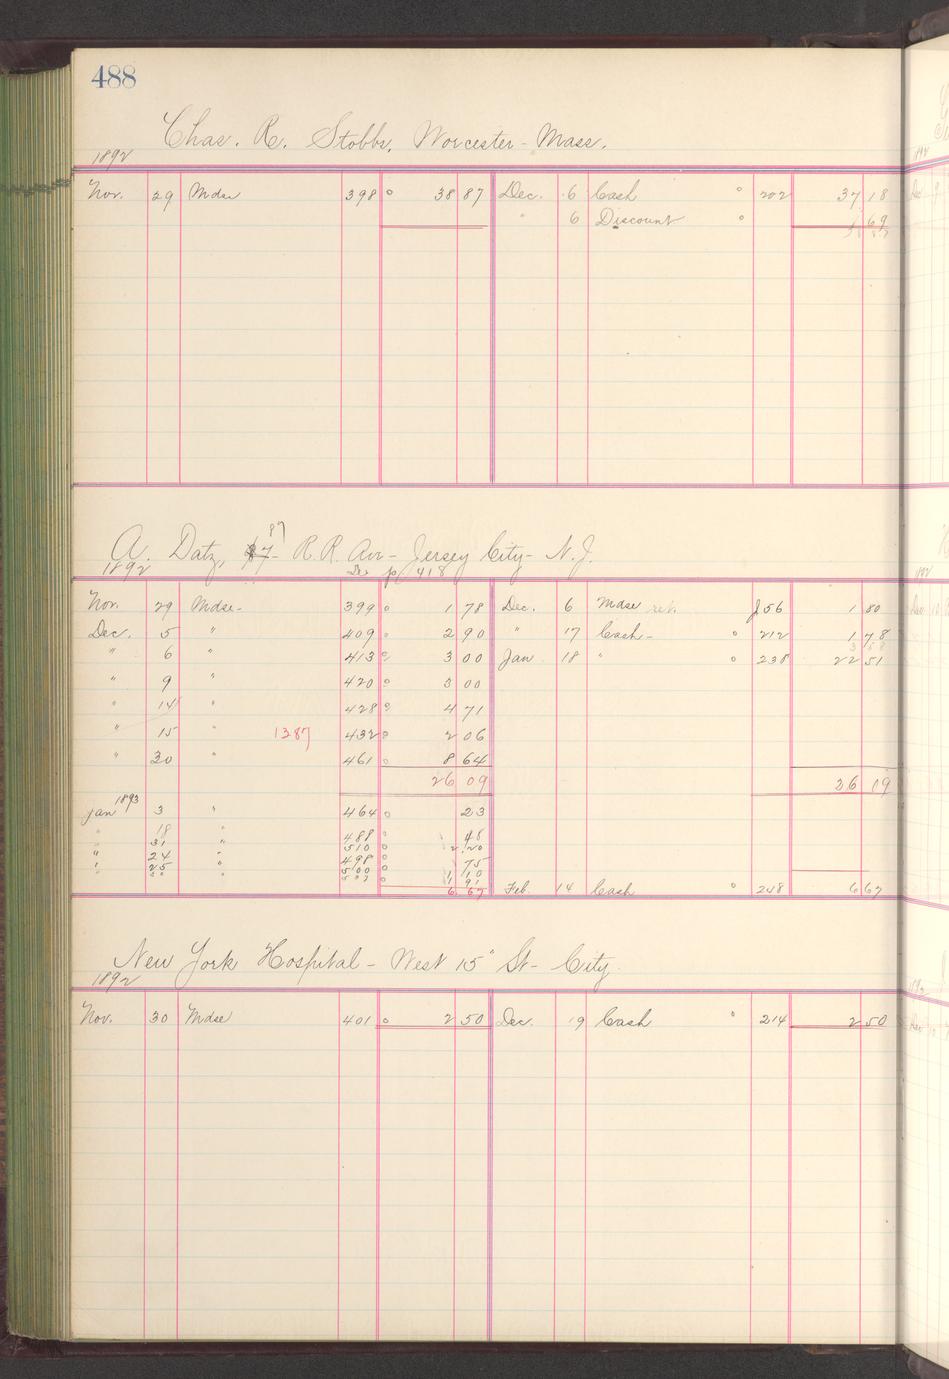 488
Chas. R. Stobbs, Worcester - Mass.
1892
Nov. 29 Mdse 398 38 87 Dec. 6 Cash 202 37 18
" 6 Discount 1 69
87
A. Datz, R.R. Ave - Jersey City - N.J.
1892 p 418
Nov. 29 Mdse - 399 1 78 Dec. 6 Mdse ret. J56 1 80
Dec. 5 " 409 2 90 " 17 Cash - 212 1 78
" 6 " 413 3 00 Jan 18 " 238 22 51
" 9 " 420 3 00
" 14 " 428 4 71
" 15 " 1387 432 2 06
" 30 " 461 8 64
26 09 26 09
1893
Jan 3 " 464 23
" 18 " 488 48
" 31 " 510 2 20
" 24 " 498 75
" 25 " 500 1 10
" " 1 91
6 67 Feb. 14 Cash 6 67
New York Hospital - West 15" St - City
1892
Nov. 30 Mdse 401 2 50 Dec. 19 Cash 214 2 50